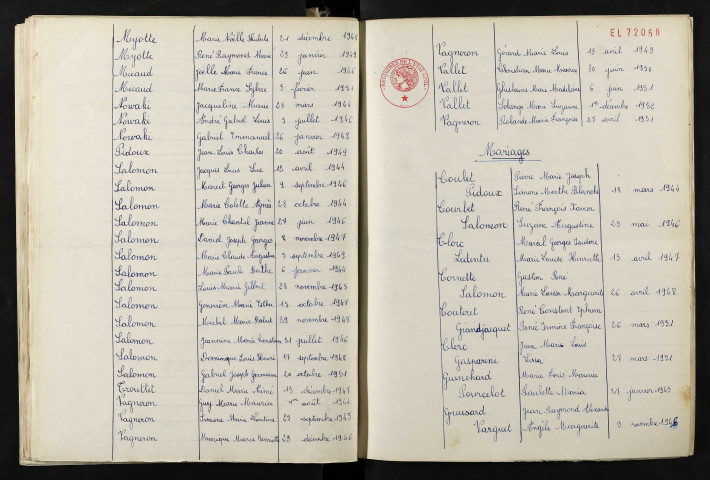 Myotte Marie Noëlle 21 décembre 1948
Myotte René Raymond Marie 29 janvier 1949
Micaud Joëlle Marie France 26 juin 1946
Micaud Marie France 3 février 1951
Nowaki Jacqueline Marie 23 mars 1944
Nowaki André Gabriel Louis 3 juillet 1946
Nowaki Gabriel Emmanuel 26 janvier 1948
Pidoux Jean Louis Charles 20 août 1949
Salomon Jacques Luc avril 1944
Salomon Marcel Georges Julien 9 septembre 1946
Salomon Marie Colette Agnès 28 octobre 1944
Salomon Marie Chantal Jeanne 27 juin 1946
Salomon Daniel Joseph Georges 8 novembre 1947
Salomon Marie Claude Augustine 3 septembre 1949
Salomon Marie Paule 6 janvier
Salomon Louis Marie Gilbert 28 novembre 1945
Salomon Geneviève Marie 13 octobre
Salomon Michel Marie 29 novembre 1948
Salomon Jeannine Marie 31 juillet 1946
Salomon Dominique Louis Henri 17 septembre 1948
Salomon Gabriel Joseph Germain 20 octobre 1951
Trouttet Daniel Marie Aimé 15 décembre 1947
Vagneron Guy Marie Maurice août 1944
Vagneron Simone Marie 23 septembre 1945
Vagneron Monique Marie Henriette 29 décembre 1946
EL 72058
Vagneron Gérard Marie Louis 13 avril 1949
Vallet Marie Maurice 30 juin 1950
Vallet Ghislaine Marie Madeleine 6 juin 1951
Vallet Solange Marie Suzanne 1er décembre 1952
Vagneron Rolande Marie Françoise 27 avril 1951
Mariages
Coulet Pierre Marie Joseph
Pidoux Simone Marthe Blanche 18 mars 1944
Courbet René François Xavier
Salomon Suzane Augustine 23 mai 1946
Clerc Marcel Georges Isidore
Ledentu Marie Louise Henriette 15 avril 1947
Cornette Gaston René
Salomon Marie Louise Marguerite 26 avril 1948
René Constant
Grandjacquet Renée Françoise 26 mars 1951
Clerc Jean Marie Louis
Gasparine Lina 27 mars 1951
Guinchard Marie Louis Maurice
Maria 27 janvier 1945
Jean Raymond
Varguet Angèle Marguerite 9 novembre 1946